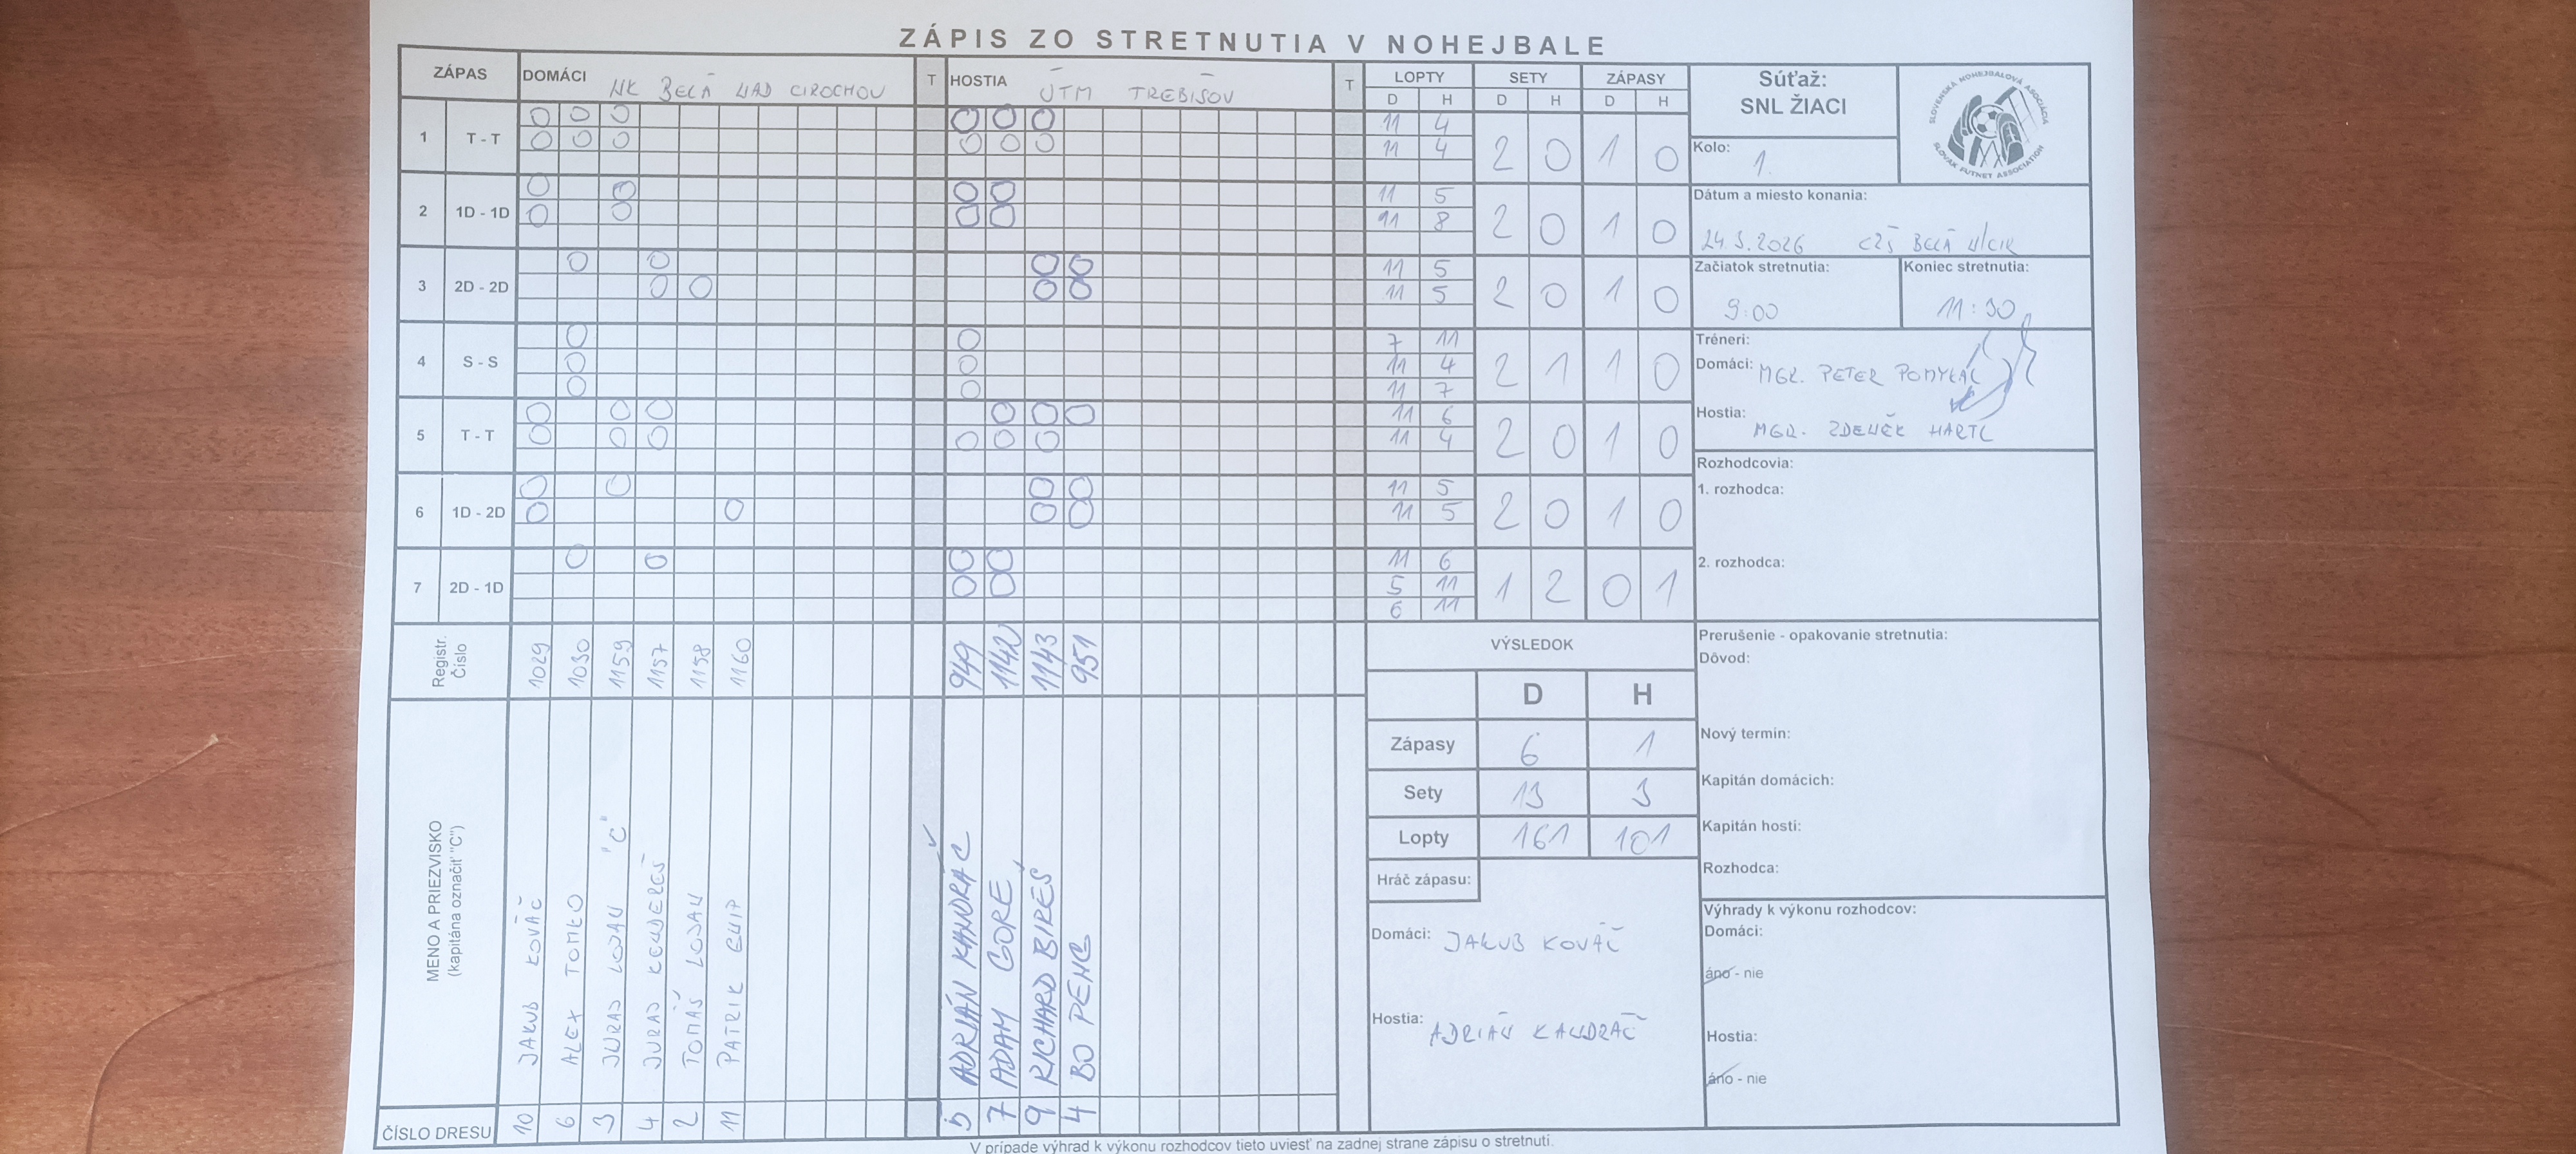 ZÁPIS ZO STRETNUTIA V NOHEJBALE
ZÁPAS DOMÁCI NK BELÁ NAD CIROCHOU T HOSTIA ÚTM TREBIŠOV T LOPTY SETY ZÁPASY
D H D H D H
1 T - T 11 4 2 0 1 0
11 4
2 1D - 1D 11 5 2 0 1 0
11 8
3 2D - 2D 11 5 2 0 1 0
11 5
4 S - S 7 11 2 1 1 0
11 4
11 7
5 T - T 11 6 2 0 1 0
11 4
6 1D - 2D 11 5 2 0 1 0
11 5
7 2D - 1D 11 6 1 2 0 1
5 11
6 11
Registr. Číslo 1029 1030 1159 1157 1158 1160 949 1142 1143 951
MENO A PRIEZVISKO
(kapitána označiť "C")
JAKUB KOVÁČ
ALEX TOMKO
JURAJ LOJAN "C"
JURAJ KENDEREŠ
TOMÁŠ LOJAN
PATRIK GNIP
ADRIÁN KANDRÁČ
ADAM GORE
RICHARD BIREŠ
BO PENG
ČÍSLO DRESU 10 6 3 4 2 11 5 7 9 4
VÝSLEDOK
D H
Zápasy 6 1
Sety 13 3
Lopty 161 101
Hráč zápasu:
Domáci: JAKUB KOVÁČ
Hostia: ADRIÁN KANDRÁČ
Súťaž:
SNL ŽIACI
SLOVENSKÁ NOHEJBALOVÁ ASOCIÁCIA
SLOVAK FUTNET ASSOCIATION
Kolo: 1.
Dátum a miesto konania:
24.3.2026 CZŠ BELÁ N/CIR
Začiatok stretnutia: Koniec stretnutia:
9:00 11:30
Tréneri:
Domáci: MGR. PETER POMYKAČ
Hostia:
MGR. ZDENĚK HARTL
Rozhodcovia:
1. rozhodca:
2. rozhodca:
Prerušenie - opakovanie stretnutia:
Dôvod:
Nový termín:
Kapitán domácich:
Kapitán hostí:
Rozhodca:
Výhrady k výkonu rozhodcov:
Domáci:
áno - nie
Hostia:
áno - nie
V prípade výhrad k výkonu rozhodcov tieto uviesť na zadnej strane zápisu o stretnutí.